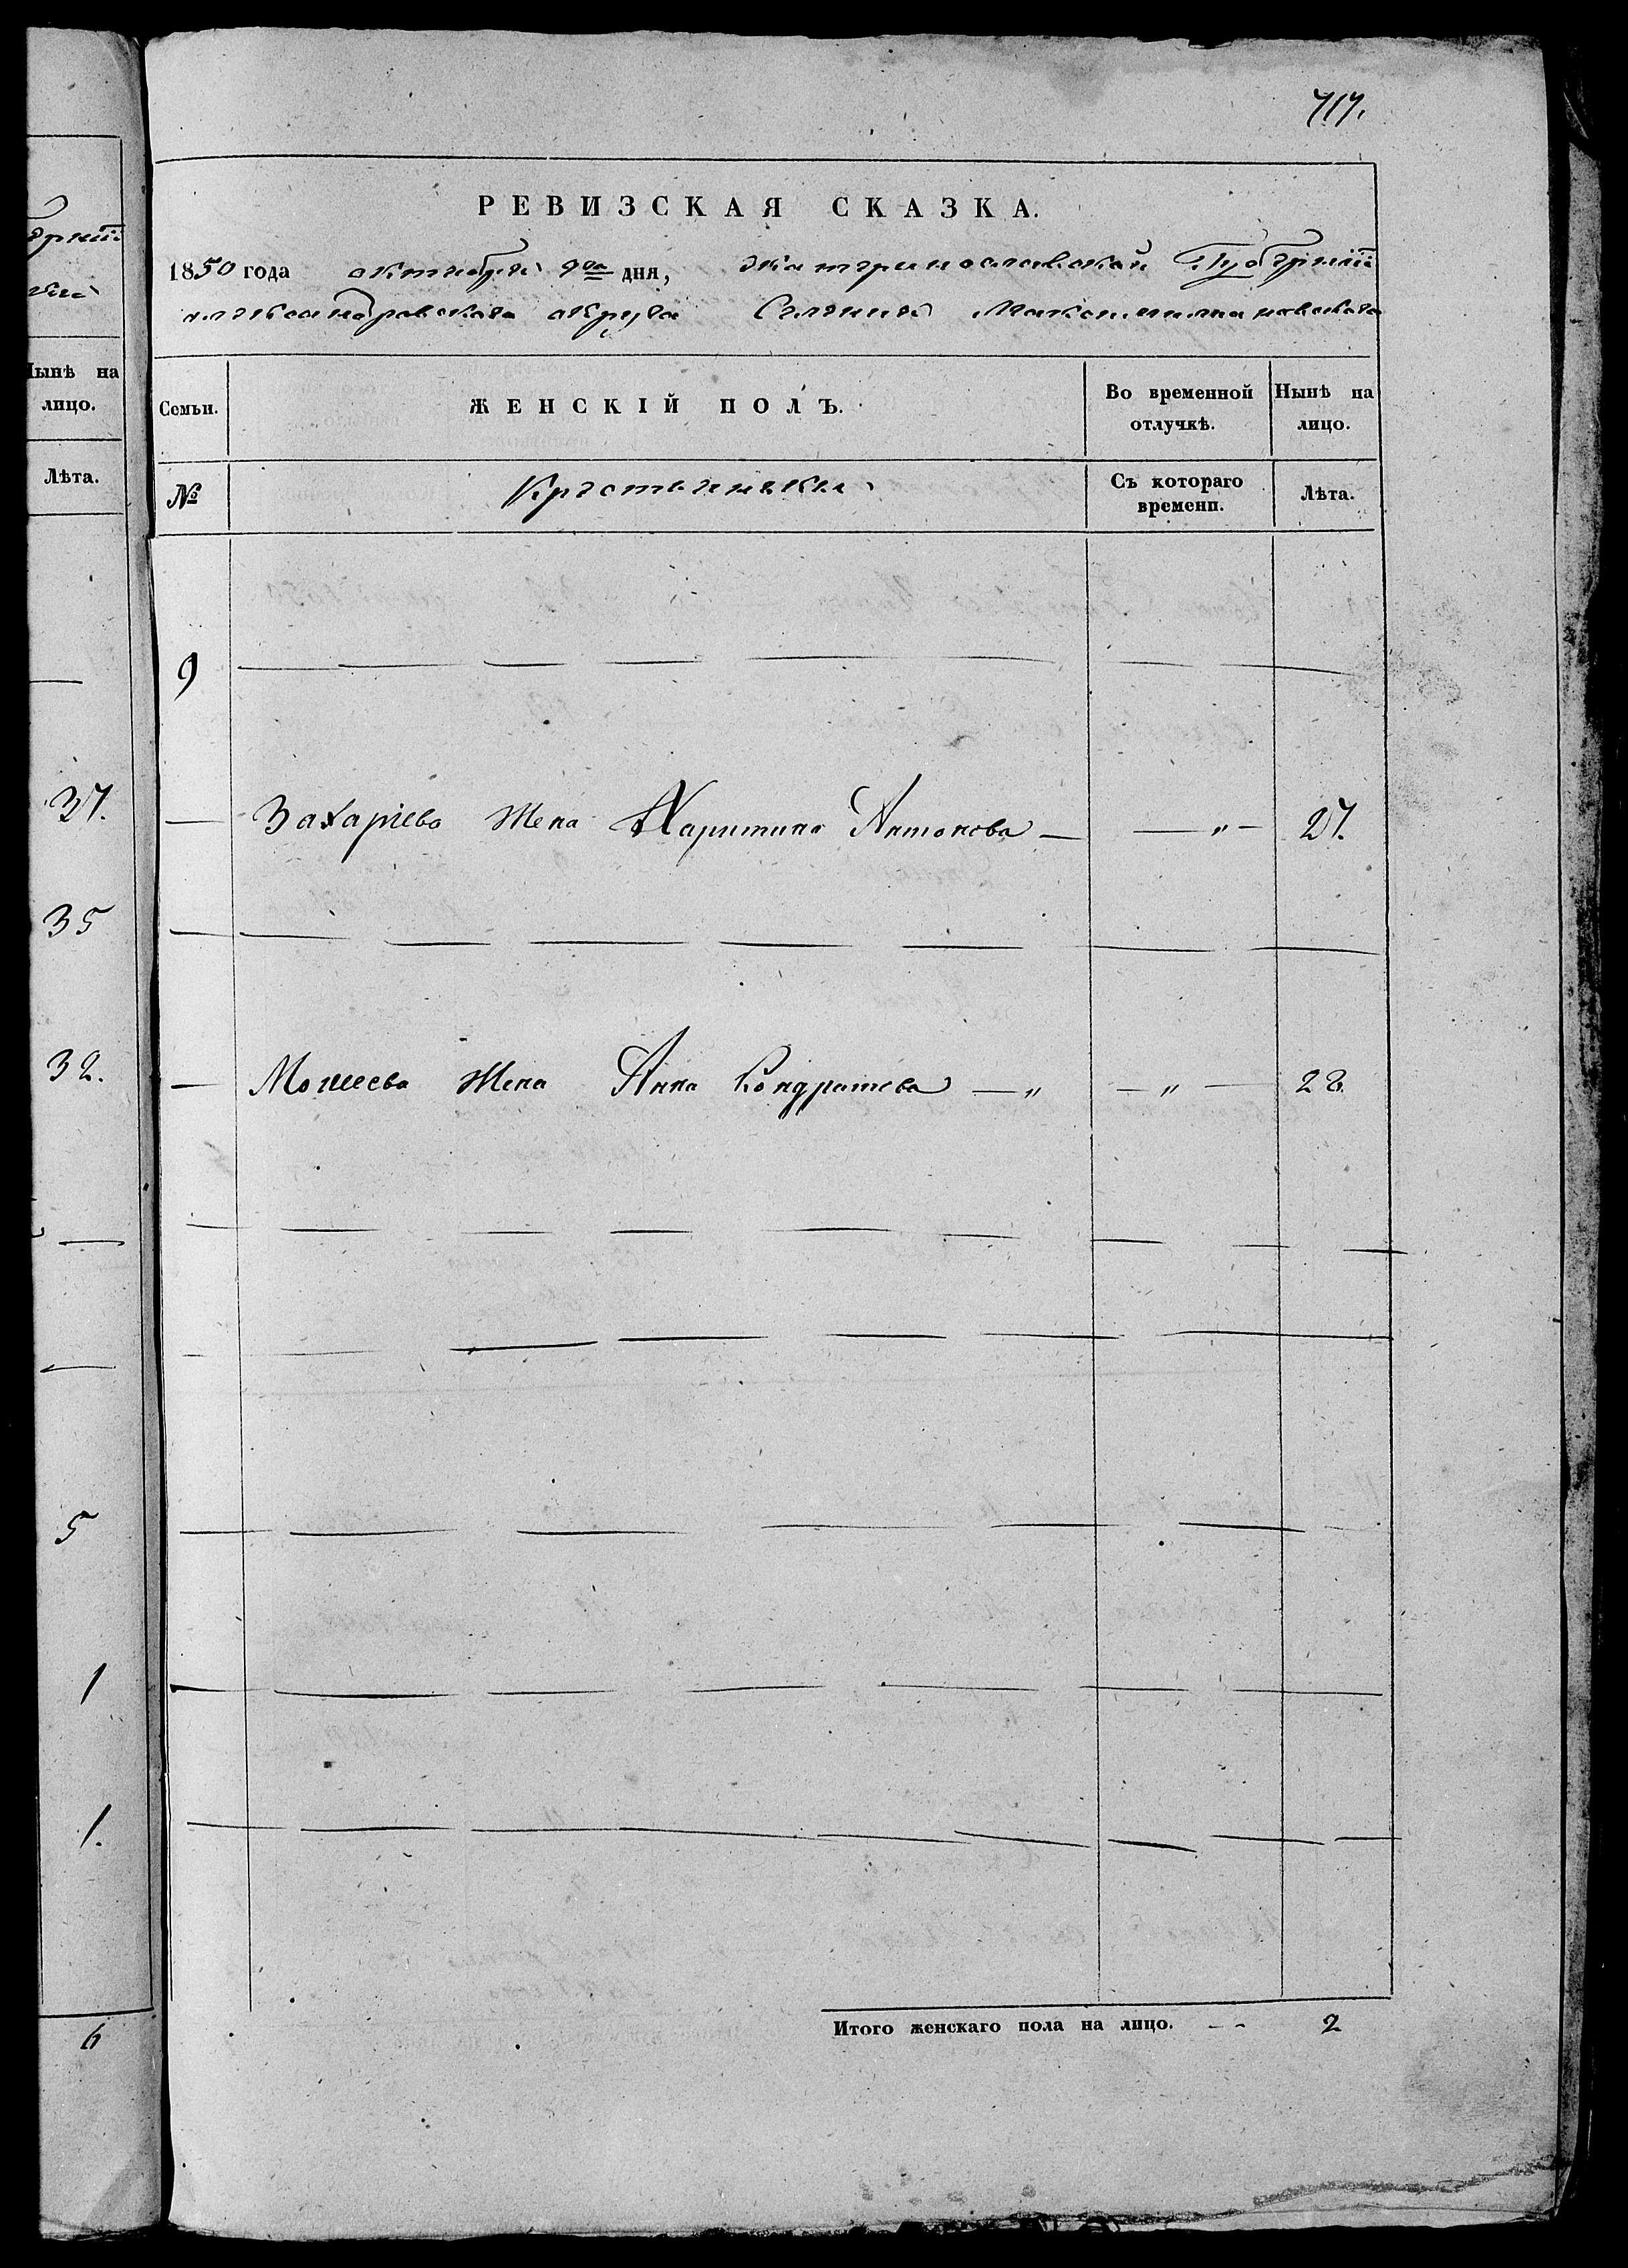 717.
РЕВИЗСКАЯ СКАЗКА.
1850 года октября 9го дня, Екатеринославской Губернiи
александровскаго округа Селенiя Максимилiановскаго
Семьи. ЖЕНСКІЙ ПОЛЪ. Во временной отлучкѣ. Нынѣ на лицо.
№ Крестьянъки Съ котораго времени. Лѣта.
9
Захарiева Жена Харитина Антонова — — „ — 27.
Моисеева Жена Анна Кондратева — „ — „ — 28.
Итого женскаго пола на лицо. — - 2
Нынѣ на
лицо.
Лѣта.
37.
35
32.
5
1
1.
6